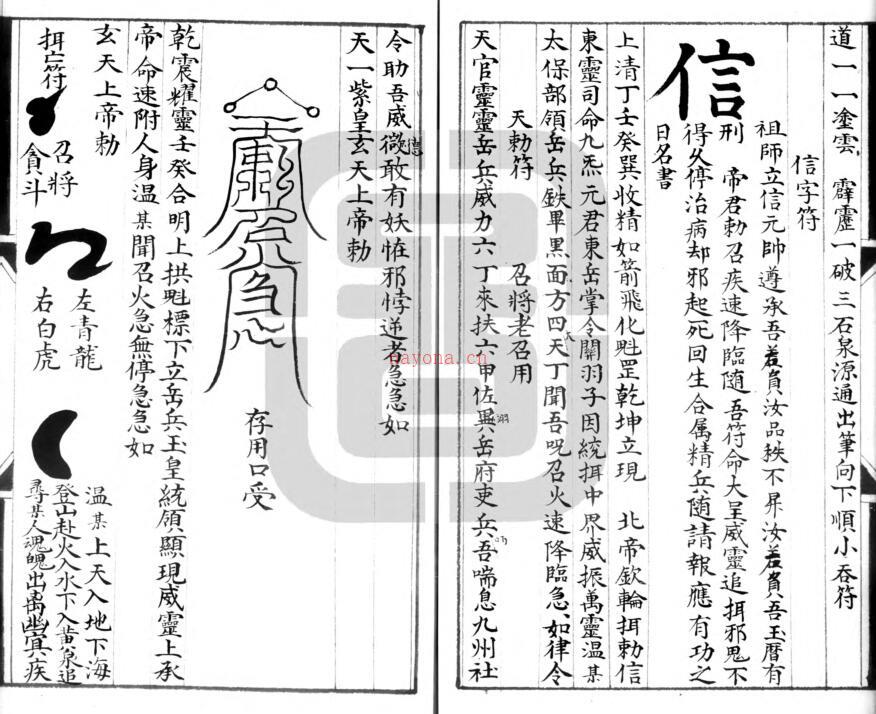 道一一塗雲 霹靂一破三石泉源通出筆向下順小吞符
信字符
信
祖師立信元帥遵承吾若負汝品秩不昇汝若負吾玉曆有
刑 帝君勅召疾速降臨隨吾符命大呈威靈追捉邪鬼不
得久停治病却邪起死回生合属精兵随請報應有功之
日名書
上清丁壬癸巽收精如箭飛化魁罡乾坤立現 北帝欽輪捉勅信
東靈司命九炁元君東岳掌令關羽子因統捉中界威振萬靈温某
太保部領岳兵鉄畢黑面方四大天丁聞吾呪召火速降臨急如律令
天勅符 召將老召用
天官靈靈岳兵威力六丁來扶六甲佐巽岳府吏兵吾喘息九州社
令助吾威德敢有妖恠邪悖逆者急急如
天一紫皇玄天上帝勅
存用口受
乾震耀靈壬癸合明上拱魁標下立岳兵玉皇統領顯現威靈上承
帝命速附人身温某聞召火急無停急急如
玄天上帝勅
捉亡符
召將
貪斗
左青龍
右白虎
温某上天入地下海
登山赴火入水下入黄泉追
尋某人魂魄出离幽冥疾
nayona.cn